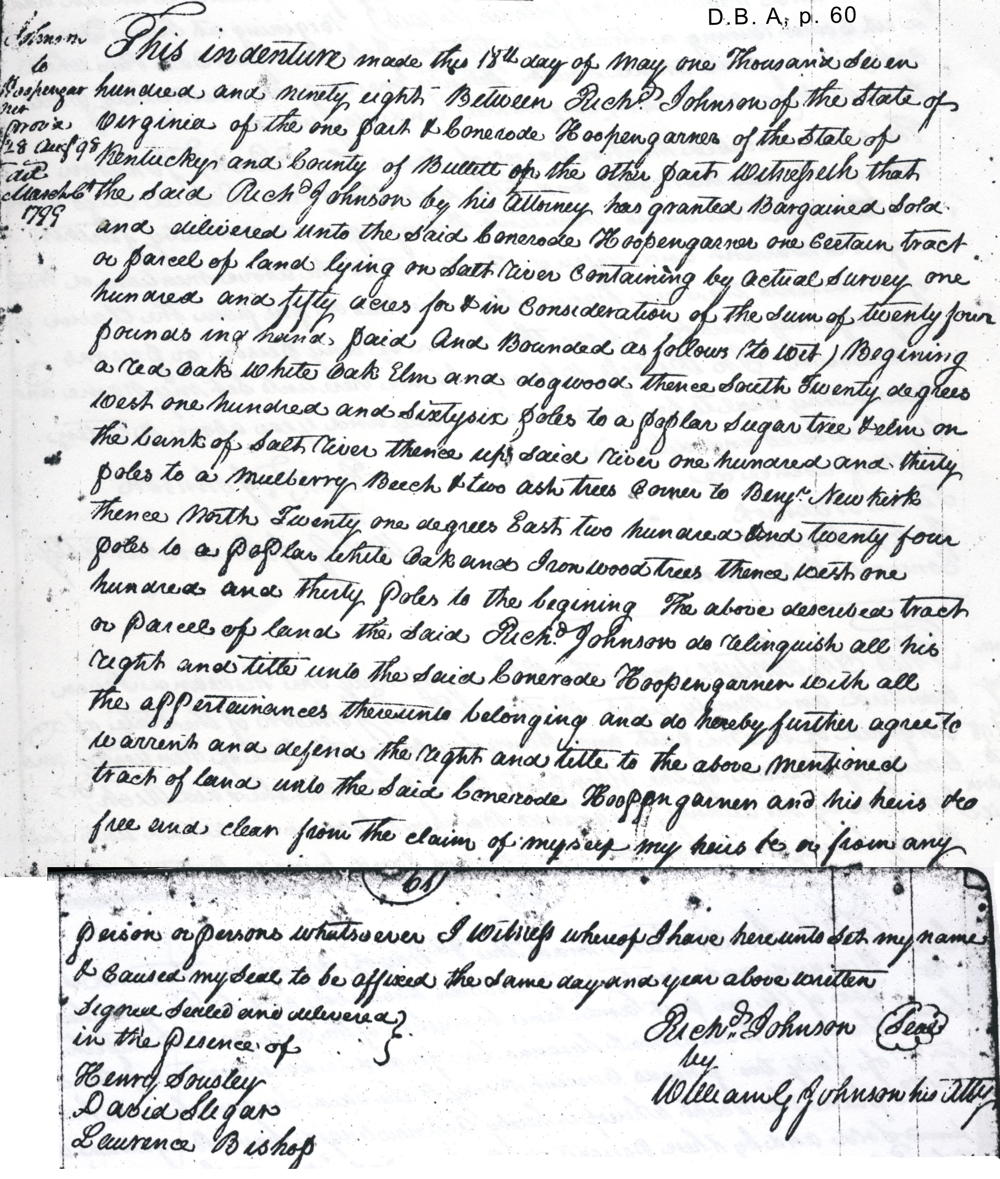 D.B. A, p. 60
Johnson
to
Hoopengar
ner
prov'd
28 Augt 98
March 6th
1799
This indenture made this 18th day of May one Thousand Seven
hundred and ninety eight Between Richd. Johnson of the State of
Virginia of the one part & Conerode Hoopengarner of the State of
Kentucky and County of Bullett of the other part Witnesseth that
the said Richd Johnson by his Attorney has granted Bargained Sold
and delivered unto the Said Conerode Hoopengarner one Certain tract
or parcel of land lying on Salt River Containing by Actual Survey one
hundred and fifty acres for & in Consideration of the Sum of twenty four
pounds in hand paid And Bounded as follows (to wit) Begining
a red Oak White Oak Elm and dogwood thence South Twenty degrees
West one hundred and Sixtysix poles to a poplar Sugar tree & elm on
the bank of Salt River thence up said River one hundred and thirty
poles to a Mulberry Beech & two ash trees Corner to Benjn. Newkirk
thence North Twenty one degrees East two hundred And twenty four
poles to a poplar White Oak and Ironwood trees thence West one
hundred and thirty Poles to the begining The above described tract
or Parcel of land the Said Richd. Johnson do relinquish all his
right and title unto the Said Conerode Hoopengarner with all
the appertainances thereunto belonging and do hereby further agree to
warrent and defend the right and title to the above mentioned
tract of land unto the Said Conerode Hooppengarner and his heirs &c
free and clear from the claim of myself my heirs &c or from any
61
person or persons whatsoever I Witness whereof I have hereunto Set my name
& Caused my Seal to be affixed the Same day and year above written
Signed Sealed and delivered
in the Presence of
Richd. Johnson Seal
by
William G Johnson his Atty
Henry Sousley
David Slegar
Laurence Bishop